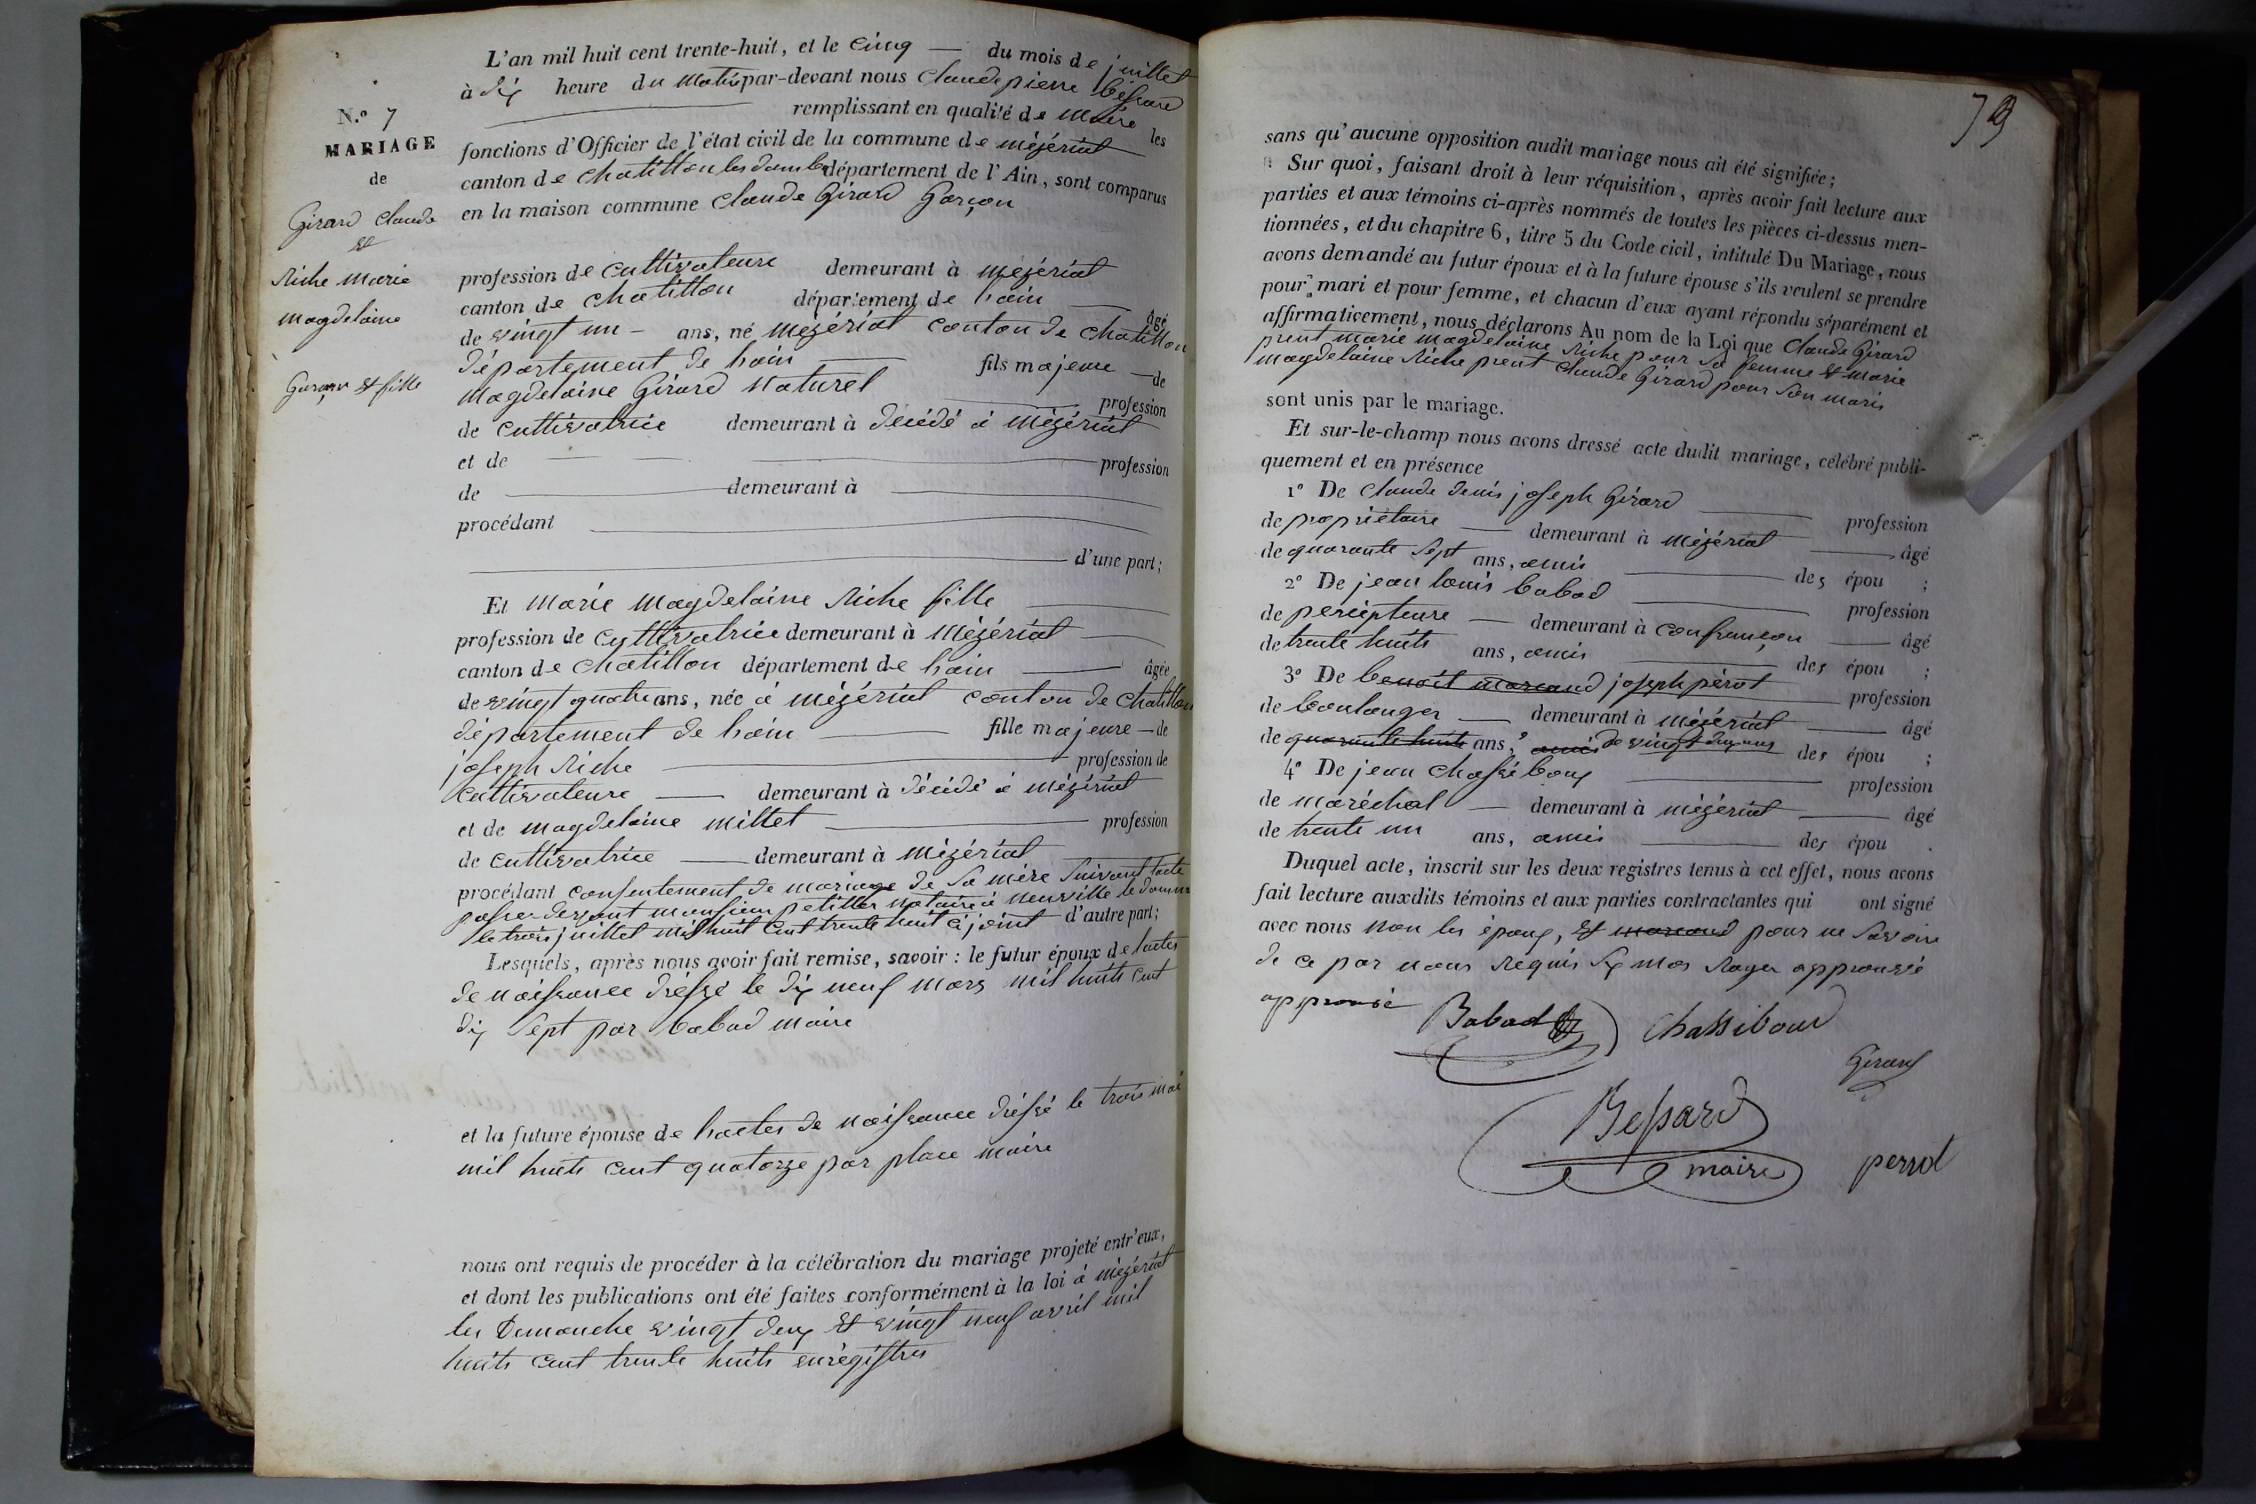 L'an mil huit cent trente-huit, et le cinq — du mois de juillet
à dix heure du matin par-devant nous claude pierre bessard
remplissant en qualité de maire les
N.º 7
MARIAGE
de
Girard claude
et
Riche marie
magdelaine
Garçon et fille
fonctions d'Officier de l'état civil de la commune de mézériat
canton de chatillon les dombe département de l'Ain, sont comparus
en la maison commune claude Girard Garçon
profession de cultivateure demeurant à mézériat
canton de chatillon département de hain — âgé
de vingt un — ans, né mézériat conton de chatillon
département de hain — fils majeure — de
magdelaine Girard naturel — profession
de cultivatrice demeurant à décédé à mézériat
et de — profession
de — demeurant à —
procédant —
— d'une part;
Et marie magdelaine Riche fille —
profession de cultivatrice demeurant à mézériat —
canton de chatillon département de hain — âgée
de vingt quatre ans, née à mézériat conton de chatillon
département de hain — fille majeure — de
joseph Riche — profession de
cultivateure — demeurant à décédé à mézériat
et de magdelaine millet — profession
de cultivatrice — demeurant à mézériat
procédant consentement de mariage de sa mère suivant lacte
passer devant monsieur petiller notaire à neuville le damme
le trois juillet mil huit cent trente huit ci joint d'autre part;
Lesquels, après nous avoir fait remise, savoir : le futur époux de lactes
de naissance dréssé le dix neuf mars mil huits cent
dix sept par babad maire
et la future épouse de hactes de naissance dréssé le trois mai
mil huits cent quatorze par place maire
nous ont requis de procéder à la célébration du mariage projeté entr'eux,
et dont les publications ont été faites conformément à la loi à mézériat
les Dimanche vingt deux et vingt neuf avril mil
huits cent trente huits enrégistres
79
sans qu'aucune opposition audit mariage nous ait été signifiée;
Sur quoi, faisant droit à leur réquisition, après avoir fait lecture aux
parties et aux témoins ci-après nommés de toutes les pièces ci-dessus men-
tionnées, et du chapitre 6, titre 5 du Code civil, intitulé Du Mariage, nous
avons demandé au futur époux et à la future épouse s'ils veulent se prendre
pour mari et pour femme, et chacun d'eux ayant répondu séparément et
affirmativement, nous déclarons Au nom de la Loi que claude Girard
prent marie magdelaine Riche pour sa femme et marie
magdelaine Riche prent claude Girard pour son maris
sont unis par le mariage.
Et sur-le-champ nous avons dressé acte dudit mariage, célébré publi-
quement et en présence
1º De claude denis joseph Girard — profession
de propriétaire — demeurant à mézériat — âgé
de quarante sept ans, amis — des épou ;
2º De jean louis babad — profession
de percépteure — demeurant à confrançon — âgé
de trente huits ans, amis — des épou ;
3º De benoit marcand joseph pérot — profession
de boulanger — demeurant à mézériat — âgé
de quarante huits ans, amis de vingt dix ans des épou ;
4º De jean chassé boux — profession
de maréchal — demeurant à mézériat — âgé
de trente un ans, amis — des épou .
Duquel acte, inscrit sur les deux registres tenus à cet effet, nous avons
fait lecture auxdits témoins et aux parties contractantes qui ont signé
avec nous non les époux, et marcand pour ne savoire
de ce par nous Requis six mos Rayer approuvée
approuvé
Babad
Chassiboud
Girard
Bessard
maire
perrot